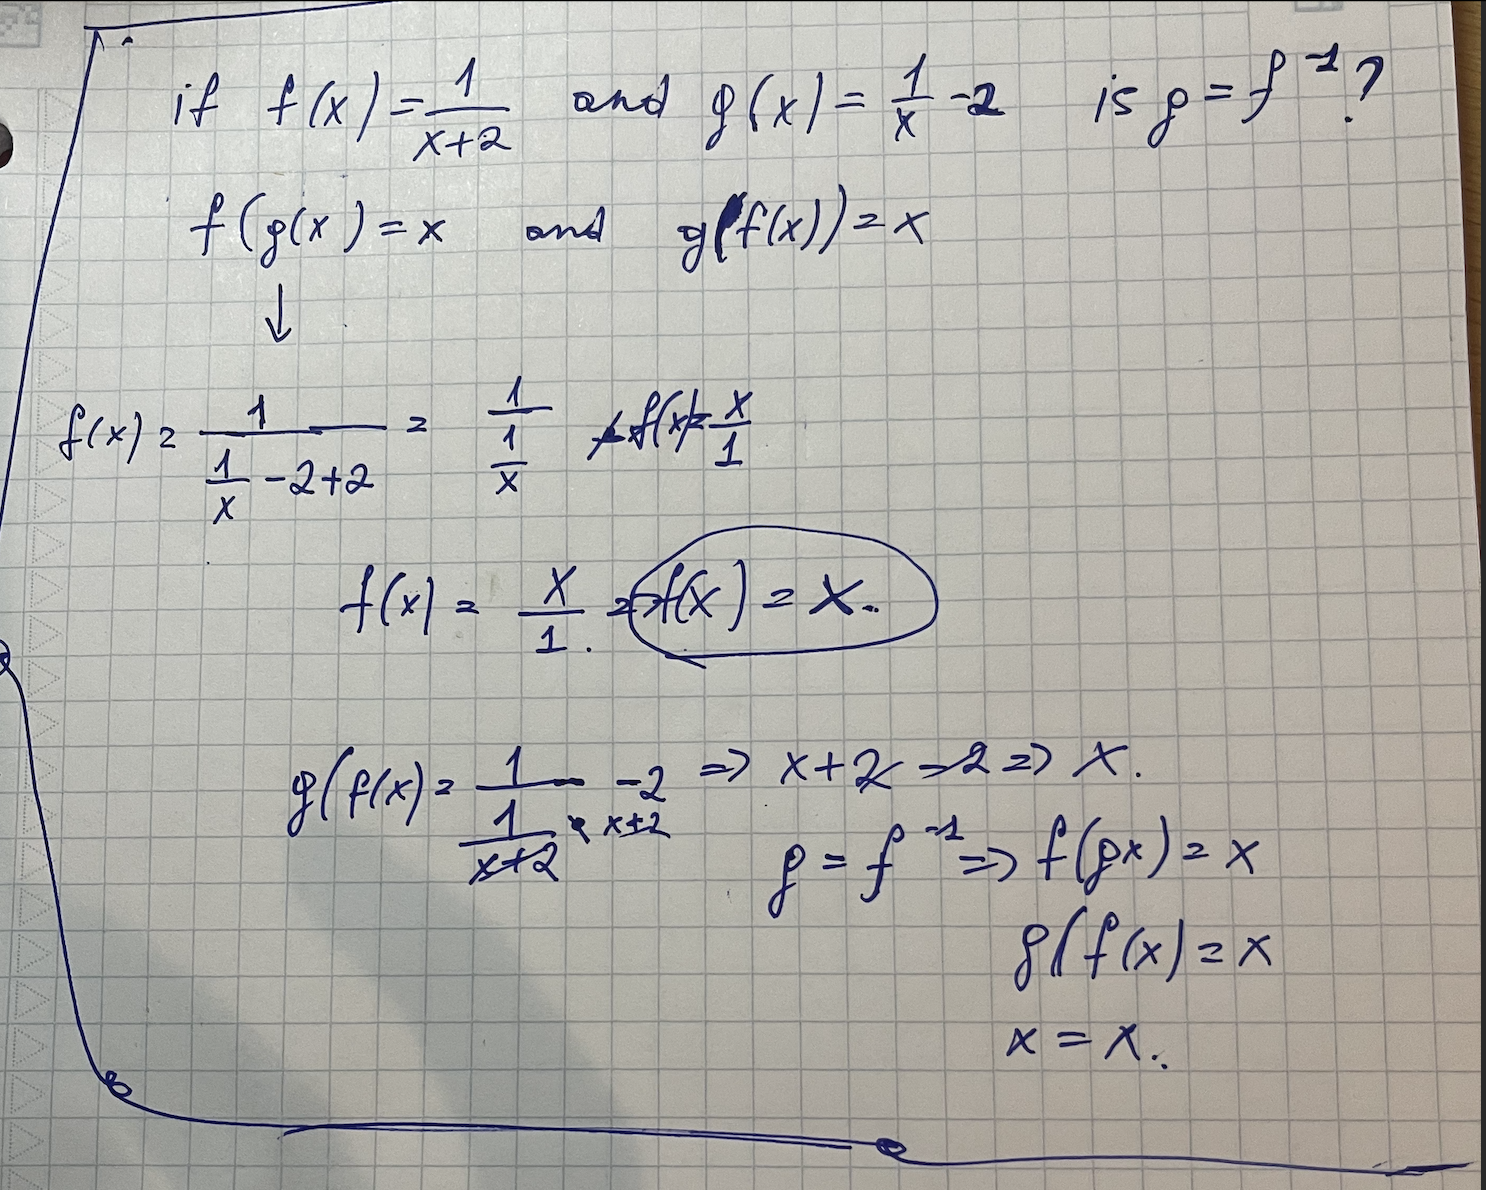 if f(x) = 1/(x+2) and g(x) = 1/x -2 is g = f⁻¹?
f(g(x) = x and g(f(x)) = x
↓
f(x) = 1/(1/x -2+2) = 1/(1/x) f(x) = x/1
f(x) = x/1. = f(x) = x.
g(f(x) = 1/(1/(x+2)) -2 => x+2 -2 => x.
x+2
g = f⁻¹ => f(gx) = x
g(f(x) = x
x = x.